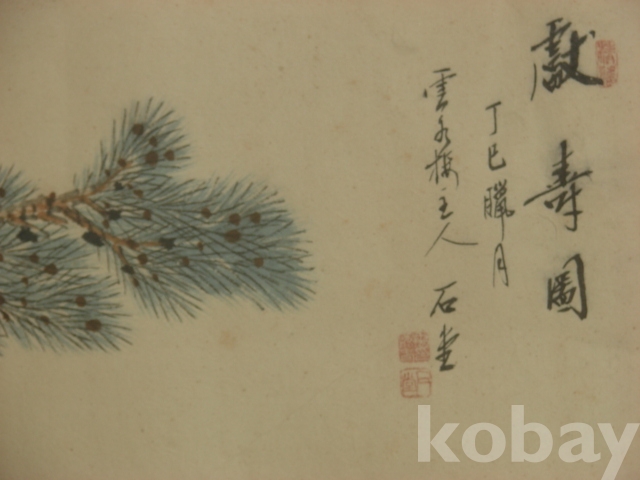 獻壽圖
丁巳臘月
雲水樓主人 石堂
kobay